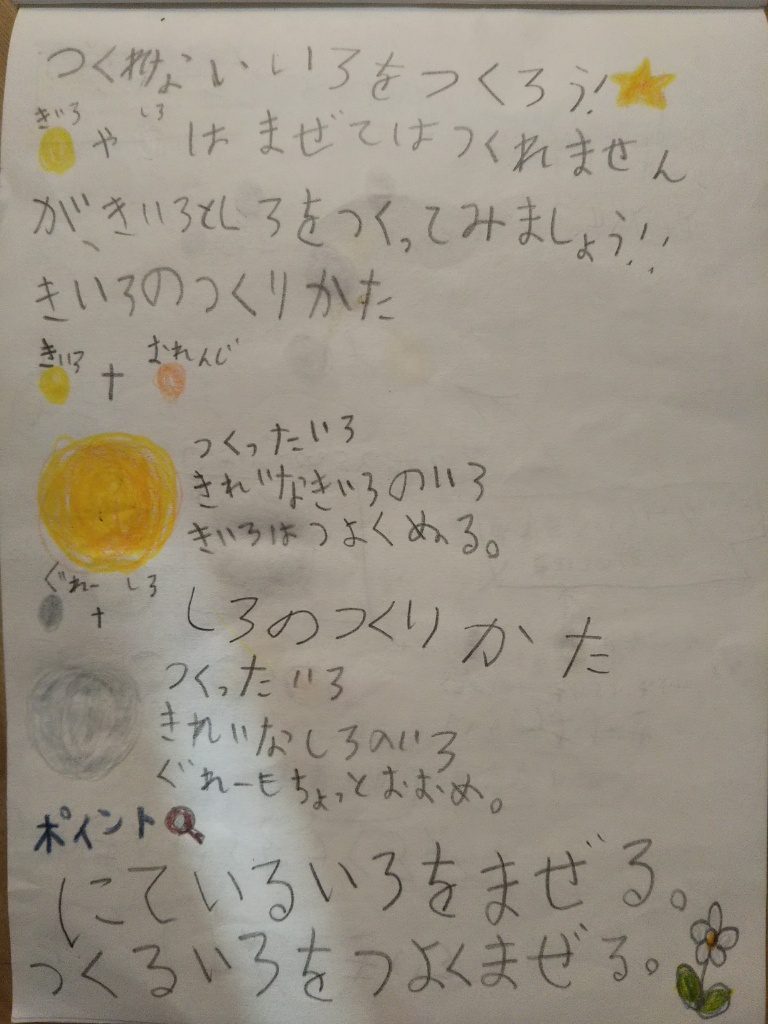 つくれないいろをつくろう!
きいろ しろ
や はまぜてはつくれません
が、きいろとしろをつくってみましょう!!
きいろのつくりかた
きいろ おれんじ
+
つくったいろ
きれいなきいろのいろ
きいろはつよくぬる。
ぐれー しろ
+
しろのつくりかた
つくったいろ
きれいなしろのいろ
ぐれーもちょっとおおめ。
ポイント
にているいろをまぜる。
つくるいろをつよくまぜる。